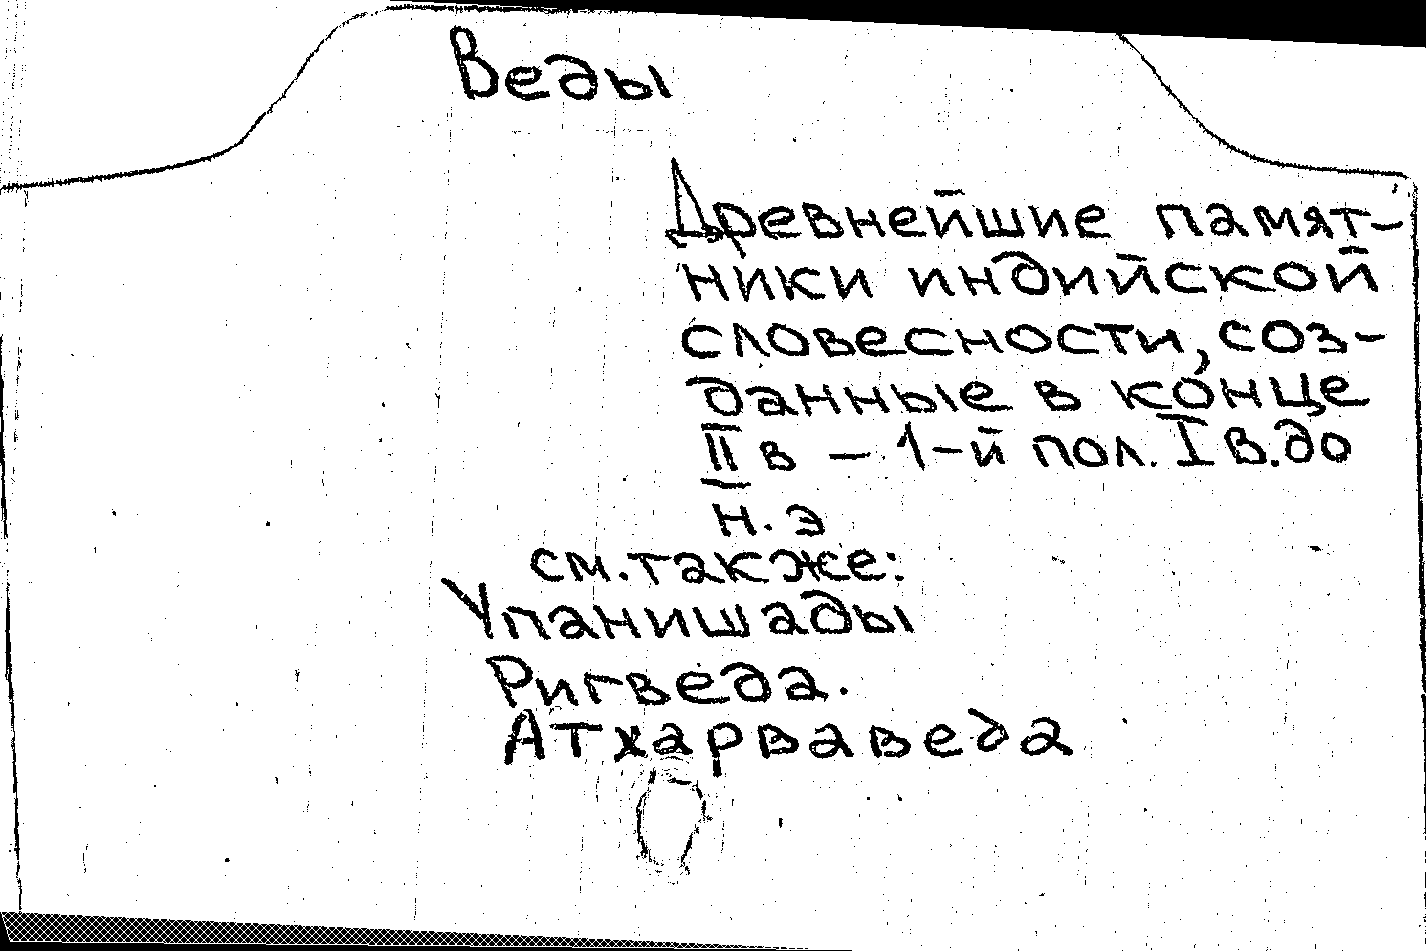 Веды
Древнейшие памят-
ники индийской
словесности, соз-
данные в конце
II в – 1-й пол. I в. до
н. э
см. также:
Упанишады
Ригведа.
Атхарваведа